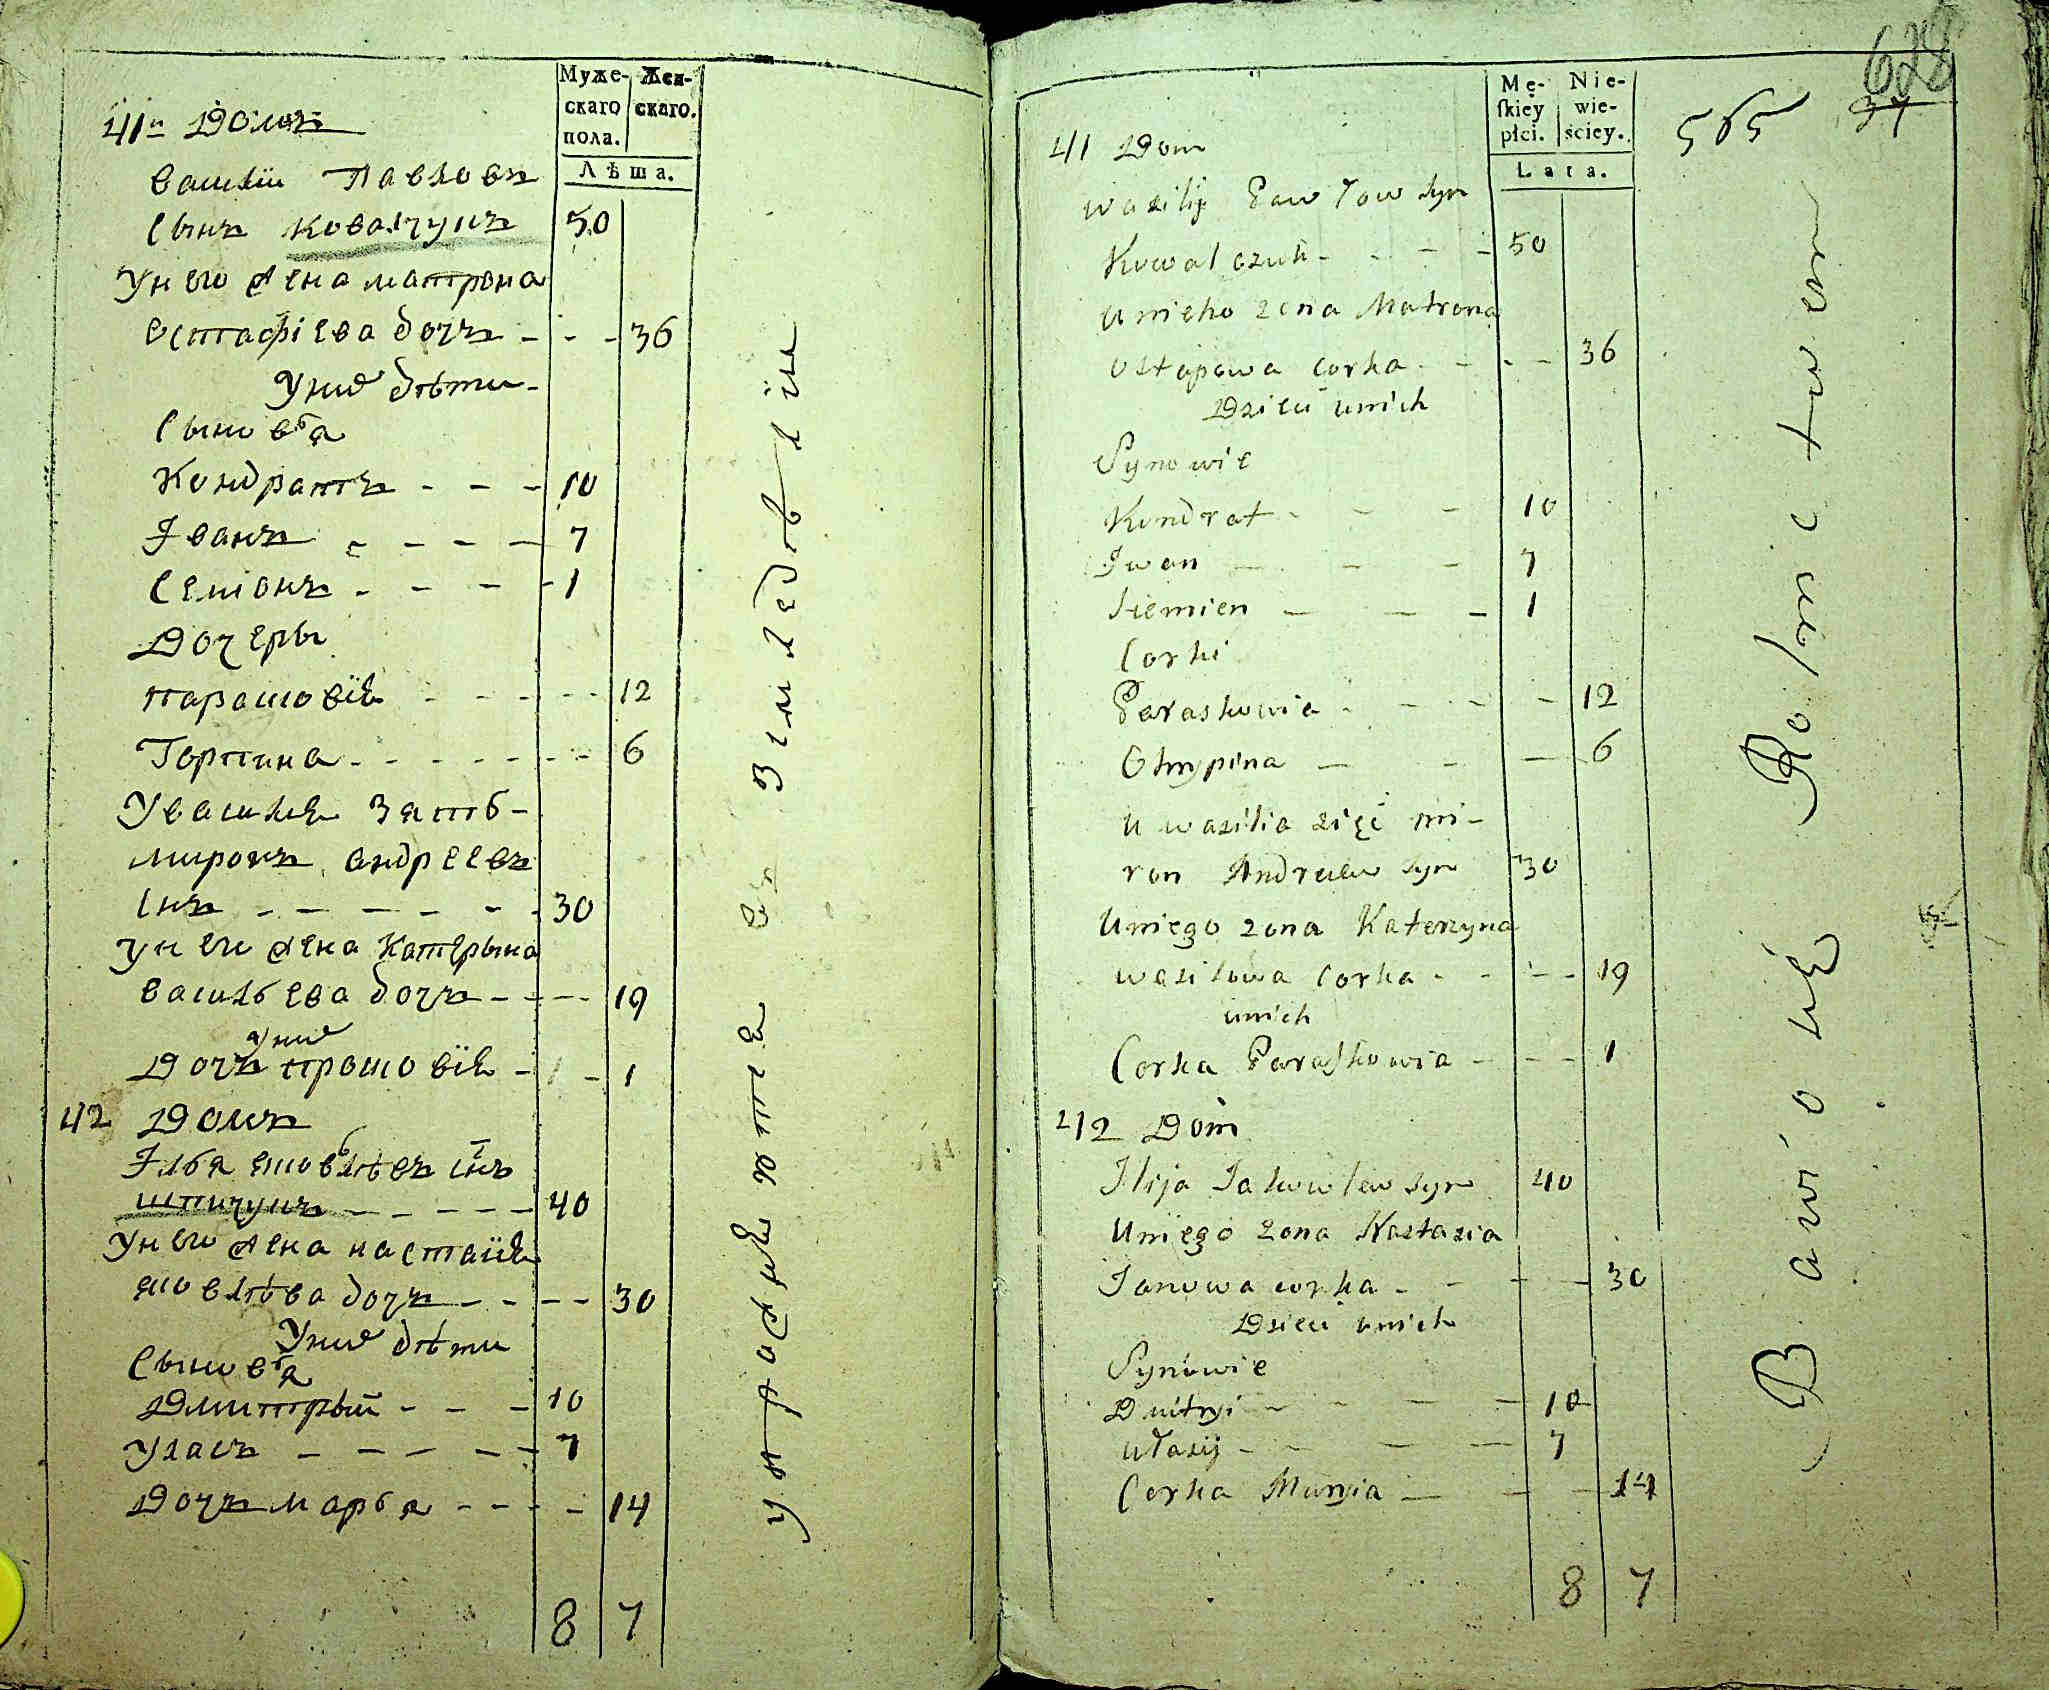 Муже- Жен-
скаго скаго.
пола.
Лѣта.
41й Домъ
Василій Павловъ
Сынъ Ковалчукъ 50
У него жена матрона
Остафіева дочъ - - - 36
У них дѣти -
Сыновья
Кондратъ - - - 10
Іванъ - - - - 7
Семіонъ - - - - 1
Дочеры
парасковія - - - - - 12
Горпина - - - - - - - 6
У василія Зять -
миронъ андреевъ
Снъ - - - - - - 30
у него жена Катерына
васильева дочъ - - - - 19
у них
Дочъ прасковія - - 1
42 Домъ
Ілья яковлѣвъ снъ
шпичукъ - - - - - 40
у него жена настасія
яковлѣва дочъ - - - - 30
У них дѣти
Сыновья
Дмитрый - - - 10
Уласъ - - - - - 7
Дочъ марья - - - - 14
8 7
упражняется въ Земледѣліи
628
565 37
Mę- Nie-
ſkiey wie-
płci. ściey.
Lata.
41 Dom
wasilij Pawłow syn
Kowalczuk - - - - 50
u nieho zona Matrona
Ostapowa corka - - - - 36
Dzieci unich
Synowie
Kondrat - - - 10
Iwan - - - 7
Siemien - - - 1
Corki
Paraskowia - - - - - 12
Ohrypina - - - 6
u wasilia zięć mi-
ron Andreiew syn 30
Uniego zona Katerzyna
wasilowa Corka - - - - 19
unich
Corka Paraſkowia - - - 1
42 Dom
Ilija Jakowlew syn 40
Uniego zona Nastazia
Janowa corka - - - - 30
Dzieci unich
Synowie
Dmitryi - - - - 10
własij - - - - 7
Corka Maryia - - - 14
8 7
Bawi się Rolnictwem